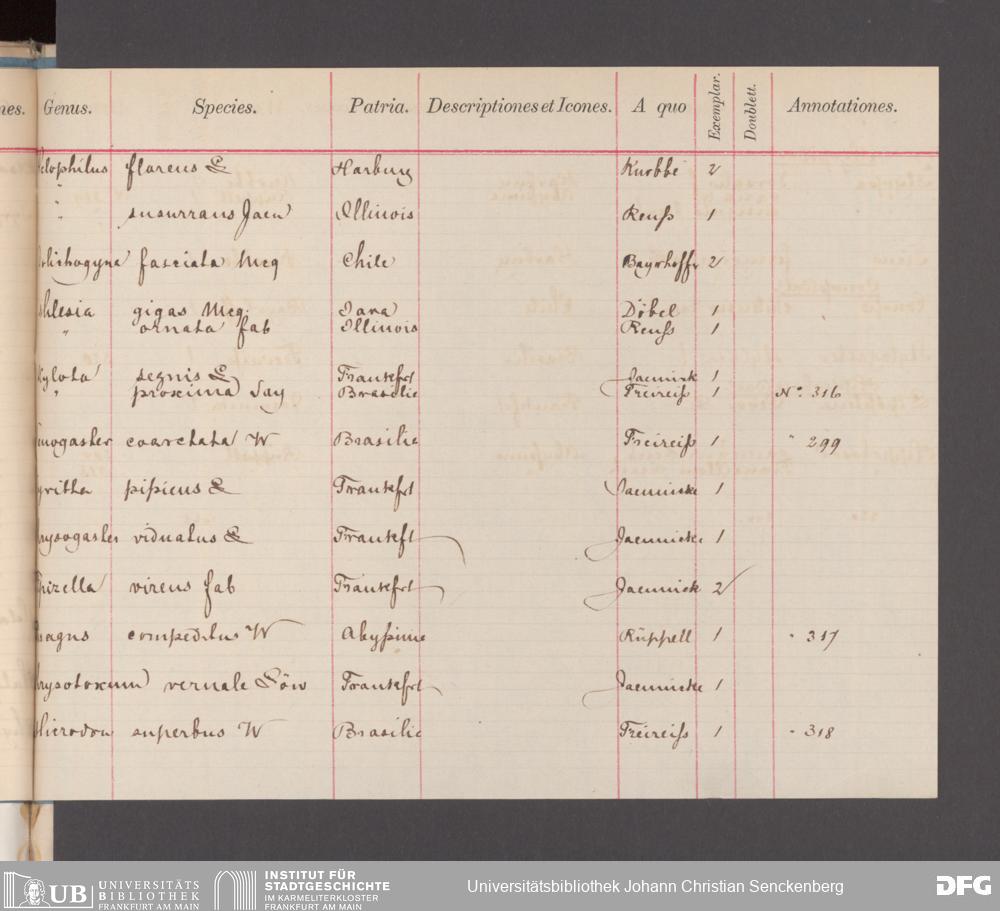 nes. Genus. Species. Patria. Descriptiones et Icones. A quo Exemplar. Doublett. Annotationes.
elophilus floreus L Harburg Knobbe 2
" susurrans Jaen Illinois Reuß 1
olichogyna fasciata Mcq Chile Bayrhoffr 2
hlesia gigas Mcq. Java Döbel 1
" ornata fab Illinois Reuß 1
Xylota segnis L Frankfrt Jaennick 1
" proxima Say Brasilie Freireiß 1 No. 316
inogaster coarctata W Brasilie Freireiß 1 " 299
yritta pipiens L Frankfrt Jaennicke 1
rysogaster viduatus L Frankft Jaennicke 1
Pipizella virens fab Frankfrt Jaennick 2
agus W Abyßinie Rüppell 1 " 317
hrysotoxum vernale Löw Frankfrt Jaennicke 1
superbus W Brasilie Freireiß 1 " 318
UB UNIVERSITÄTS
BIBLIOTHEK
FRANKFURT AM MAIN
INSTITUT FÜR
STADTGESCHICHTE
IM KARMELITERKLOSTER
FRANKFURT AM MAIN
Universitätsbibliothek Johann Christian Senckenberg
DFG